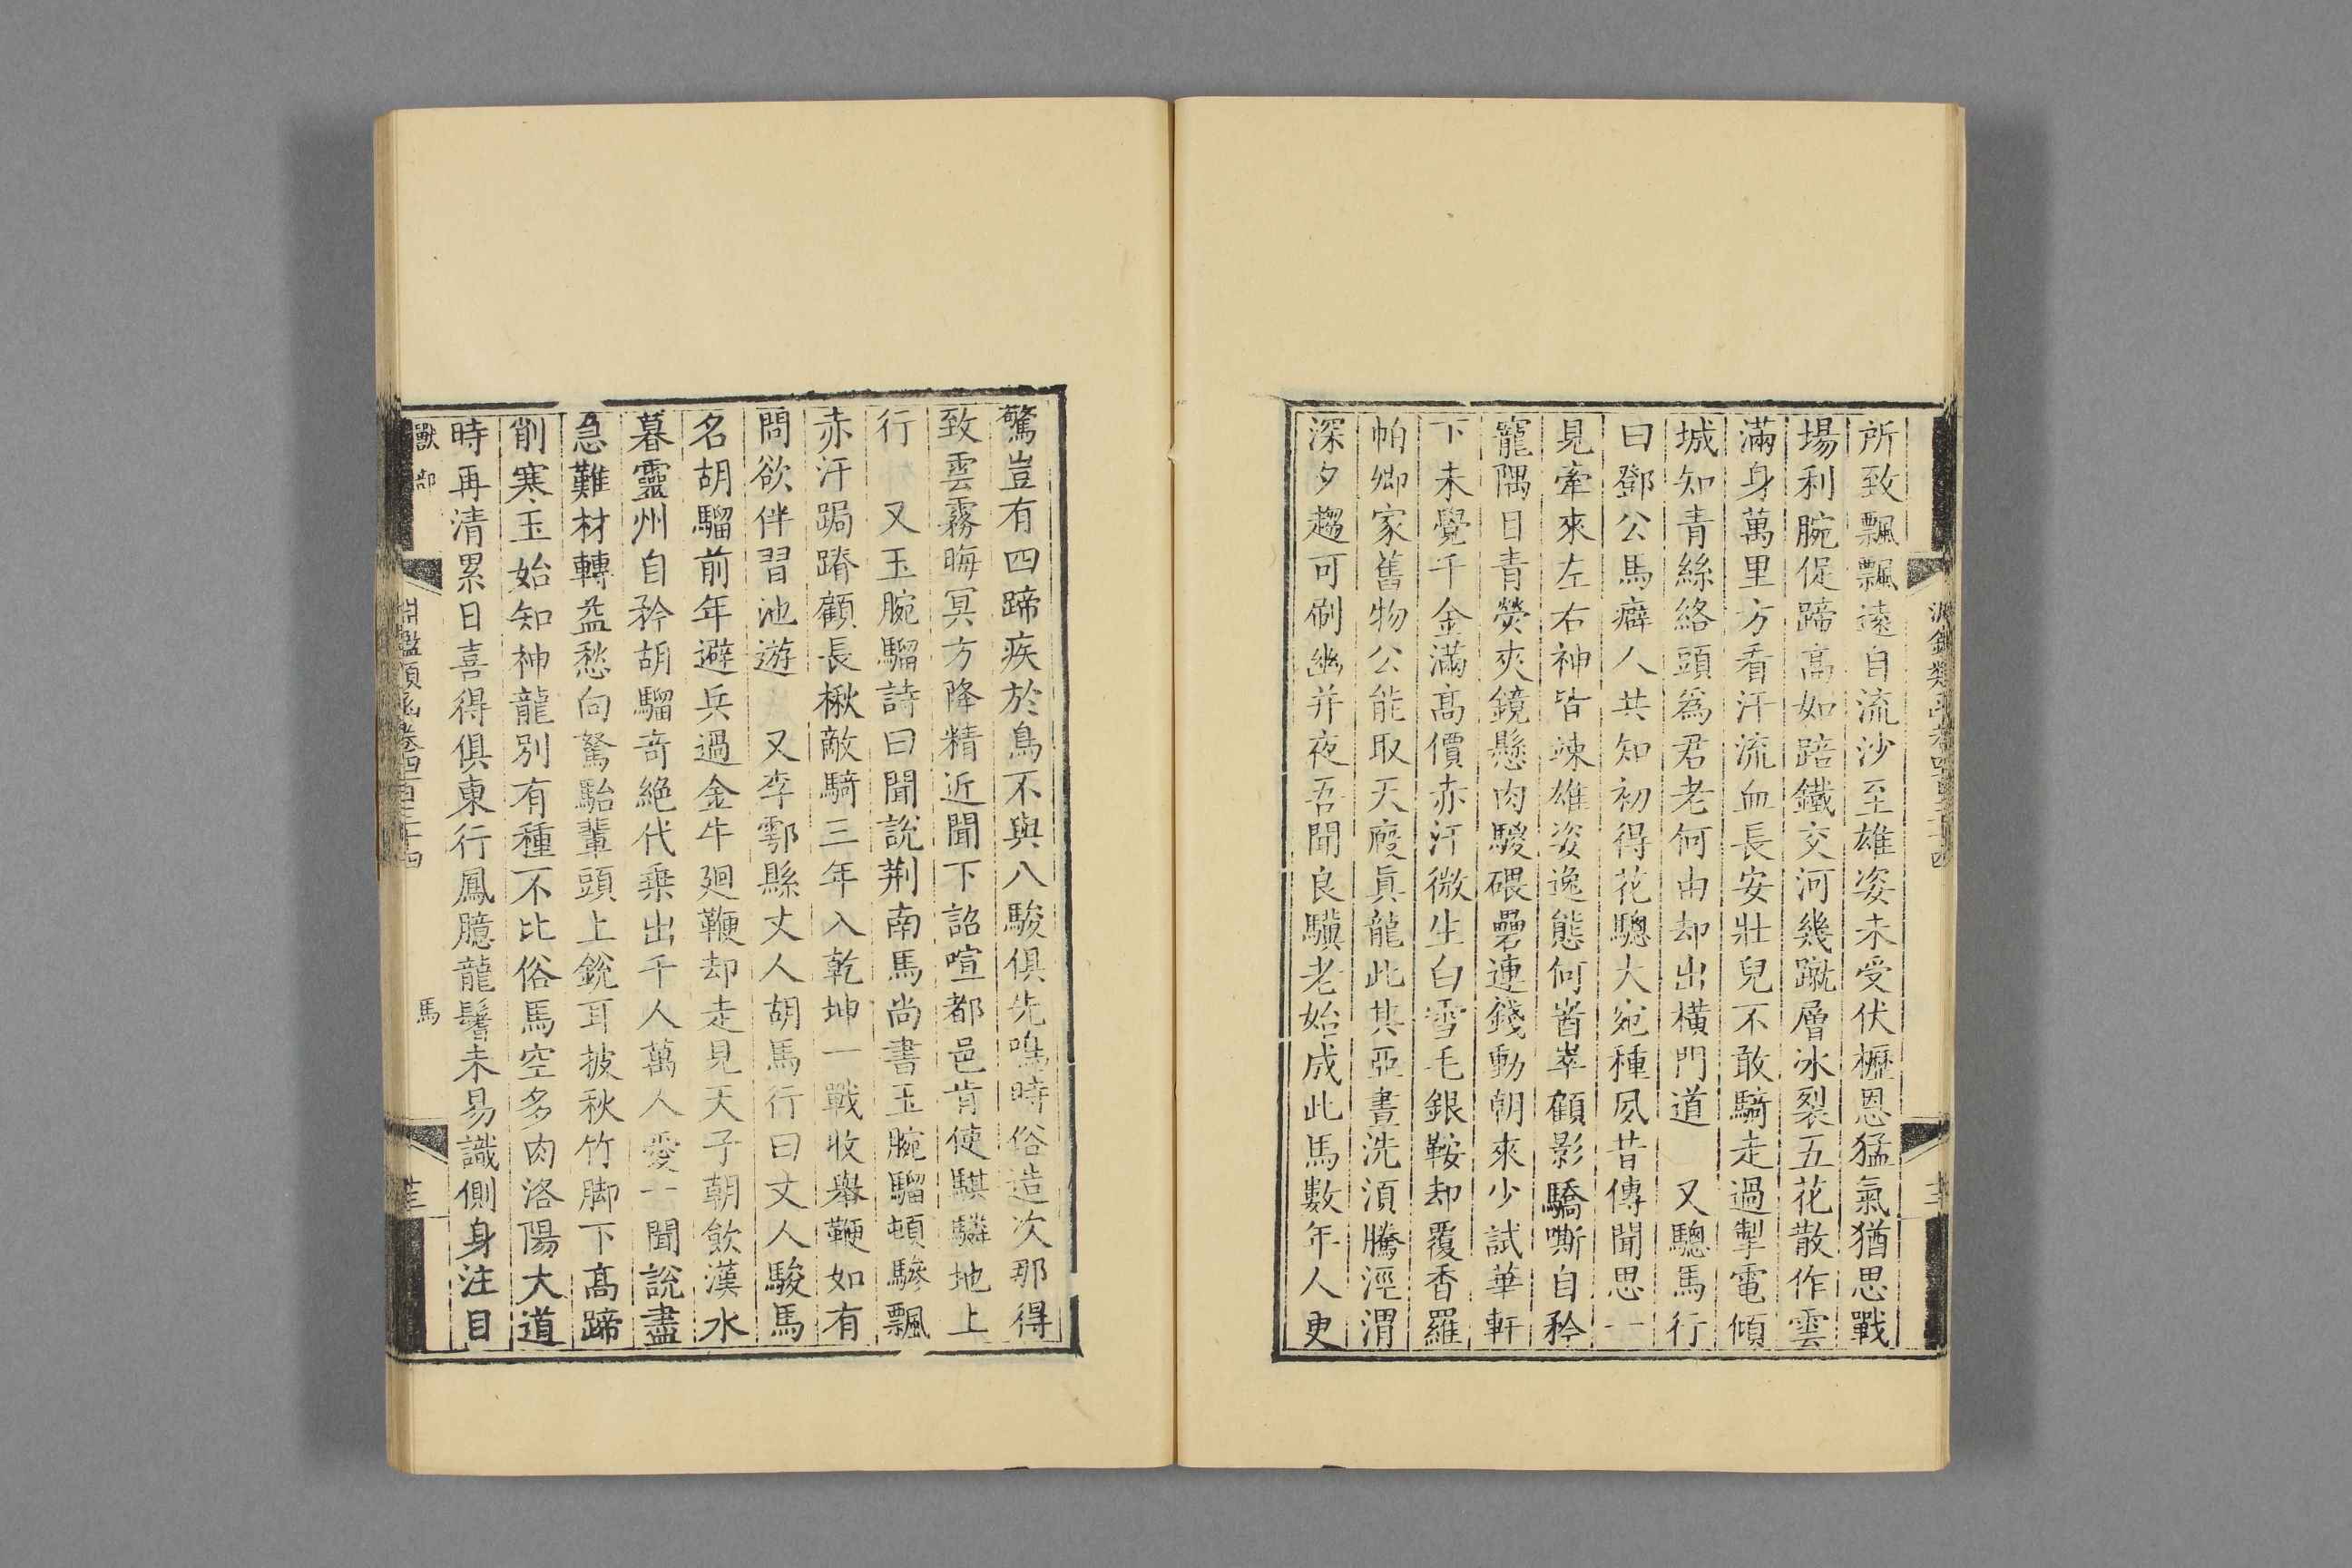 所致飄飄遠自流沙至雄姿未受伏櫪恩猛氣猶思戰
場利腕促蹄高如踣鐵交河幾蹴層冰裂五花散作雲
滿身萬里方看汗流血長安壯兒不敢騎走過掣電傾
城知青絲絡頭爲君老何由却出橫門道 又驄馬行
曰鄧公馬癖人共知初得花驄大宛種夙昔傳聞思一
見牽來左右神皆竦雄姿逸態何崷崒顧影驕嘶自矜
寵隅目青熒夾鏡懸肉騣碨礨連錢動朝來少試華軒
下未覺千金滿髙價赤汗微生白雪毛銀鞍却覆香羅
帕卿家舊物公能取天廐眞龍此其亞晝洗須騰涇渭
深夕趨可刷幽并夜吾聞良驥老始成此馬數年人更
驚豈有四蹄疾於鳥不與八駿俱先鳴時俗造次那得
致雲霧晦冥方降精近聞下詔喧都邑肯使騏驎地上
行 又玉腕騮詩曰聞說荆南馬尚書玉腕騮頓驂飄
赤汗跼蹐顧長楸敵騎三年入乾坤一戰收舉鞭如有
問欲伴習池遊 又李鄠縣丈人胡馬行曰丈人駿馬
名胡騮前年避兵過金牛廻鞭却走見天子朝飲漢水
暮靈州自矜胡騮奇絶代乗出千人萬人愛一聞說盡
急難材轉益愁向駑駘輩頭上銳耳披秋竹脚下髙蹄
削寒玉始知神龍別有種不比俗馬空多肉洛陽大道
時再清累日喜得俱東行鳳臆龍鬐未易識側身注目
獸部 淵鑑類函卷四百三十四 馬